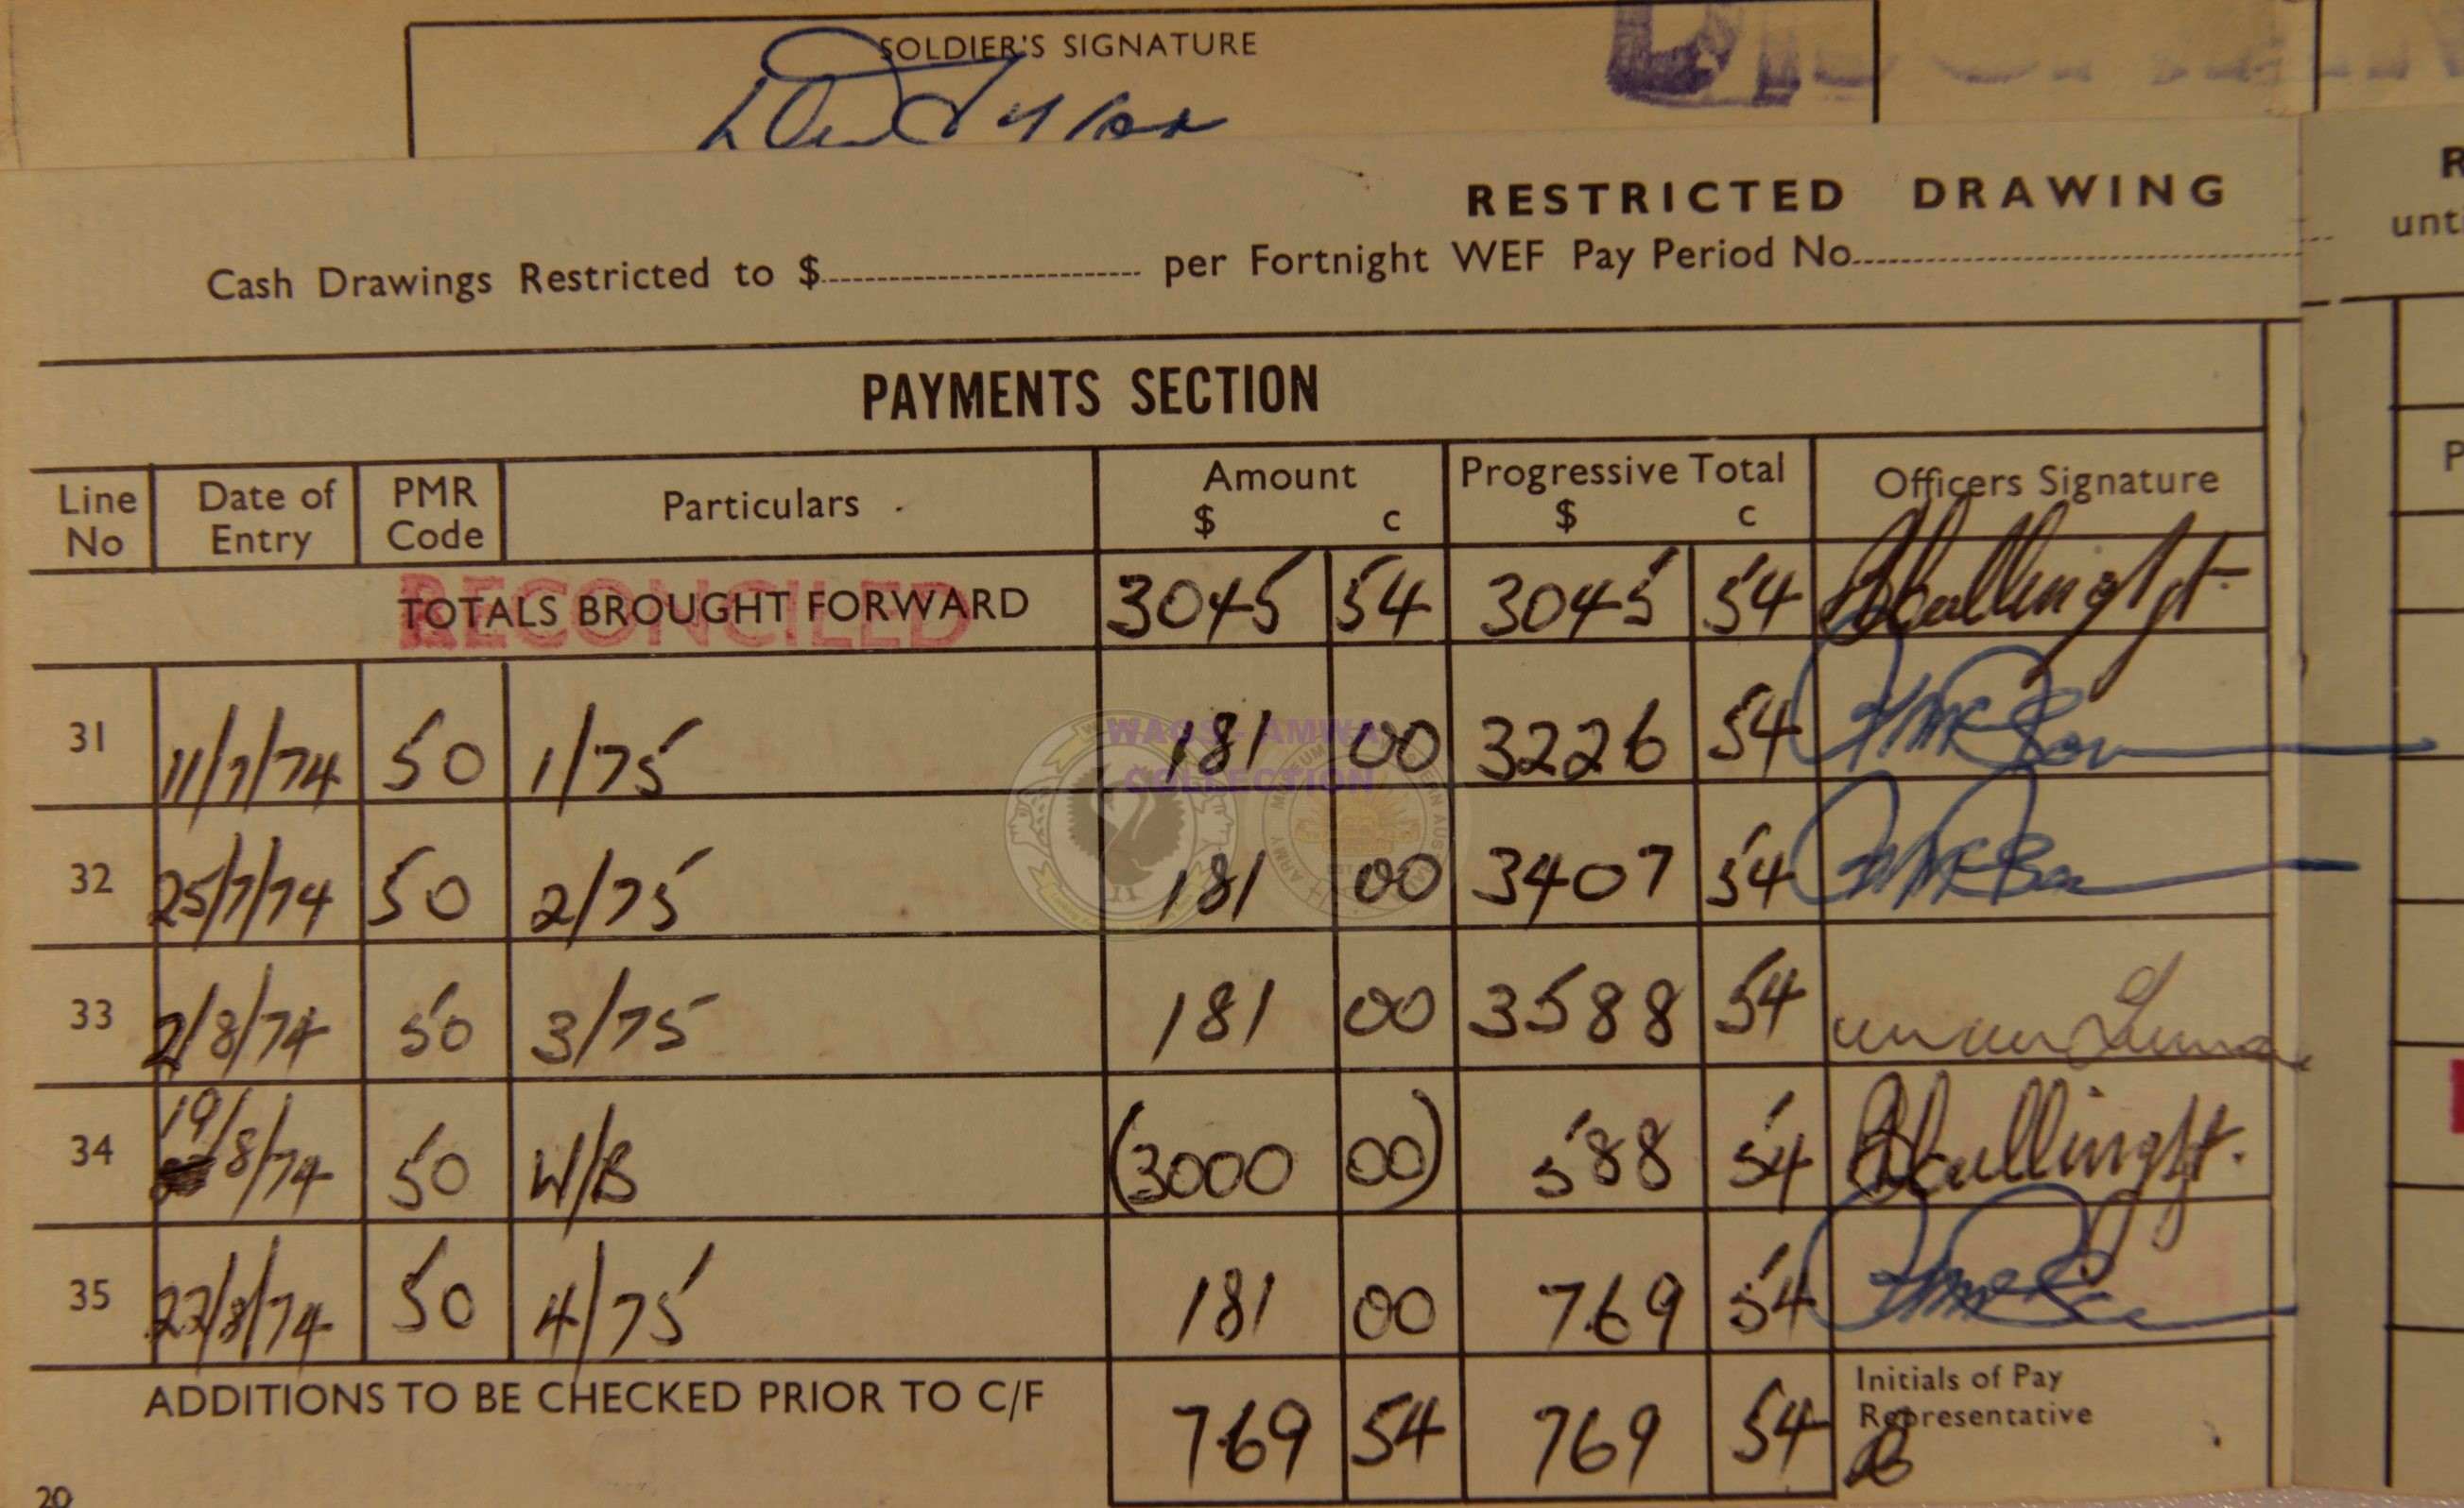 SOLDIER'S SIGNATURE
RESTRICTED DRAWING
Cash Drawings Restricted to $ per Fortnight WEF Pay Period No
PAYMENTS SECTION
Line No Date of Entry PMR Code Particulars Amount $ c Progressive Total $ c Officers Signature
RECONCILED
TOTALS BROUGHT FORWARD 3045 54 3045 54
31 11/7/74 50 1/75 181 00 3226 54
WAGS - AMWA
COLLECTION
32 25/7/74 50 2/75 181 00 3407 54
33 2/8/74 50 3/75 181 00 3588 54
34 19/8/74 50 W/B (3000 00) 588 54
35 22/8/74 50 4/75 181 00 769 54
ADDITIONS TO BE CHECKED PRIOR TO C/F 769 54 769 54 Initials of Pay Representative
20